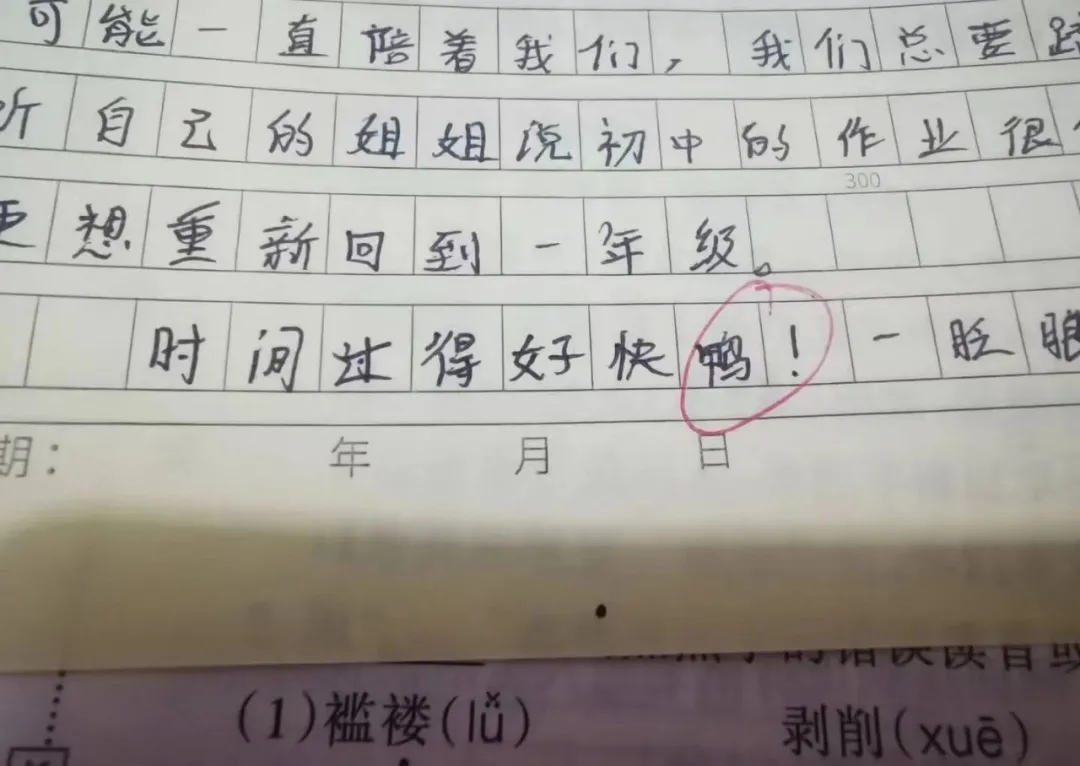 可能一直陪着我们，我们总要
自己的姐姐说初中的作业很
300
更想重新回到一年级。
时间过得好快鸭！一眨眼
期： 年 月 日
(1)褴褛(lǚ) 剥削(xuē)